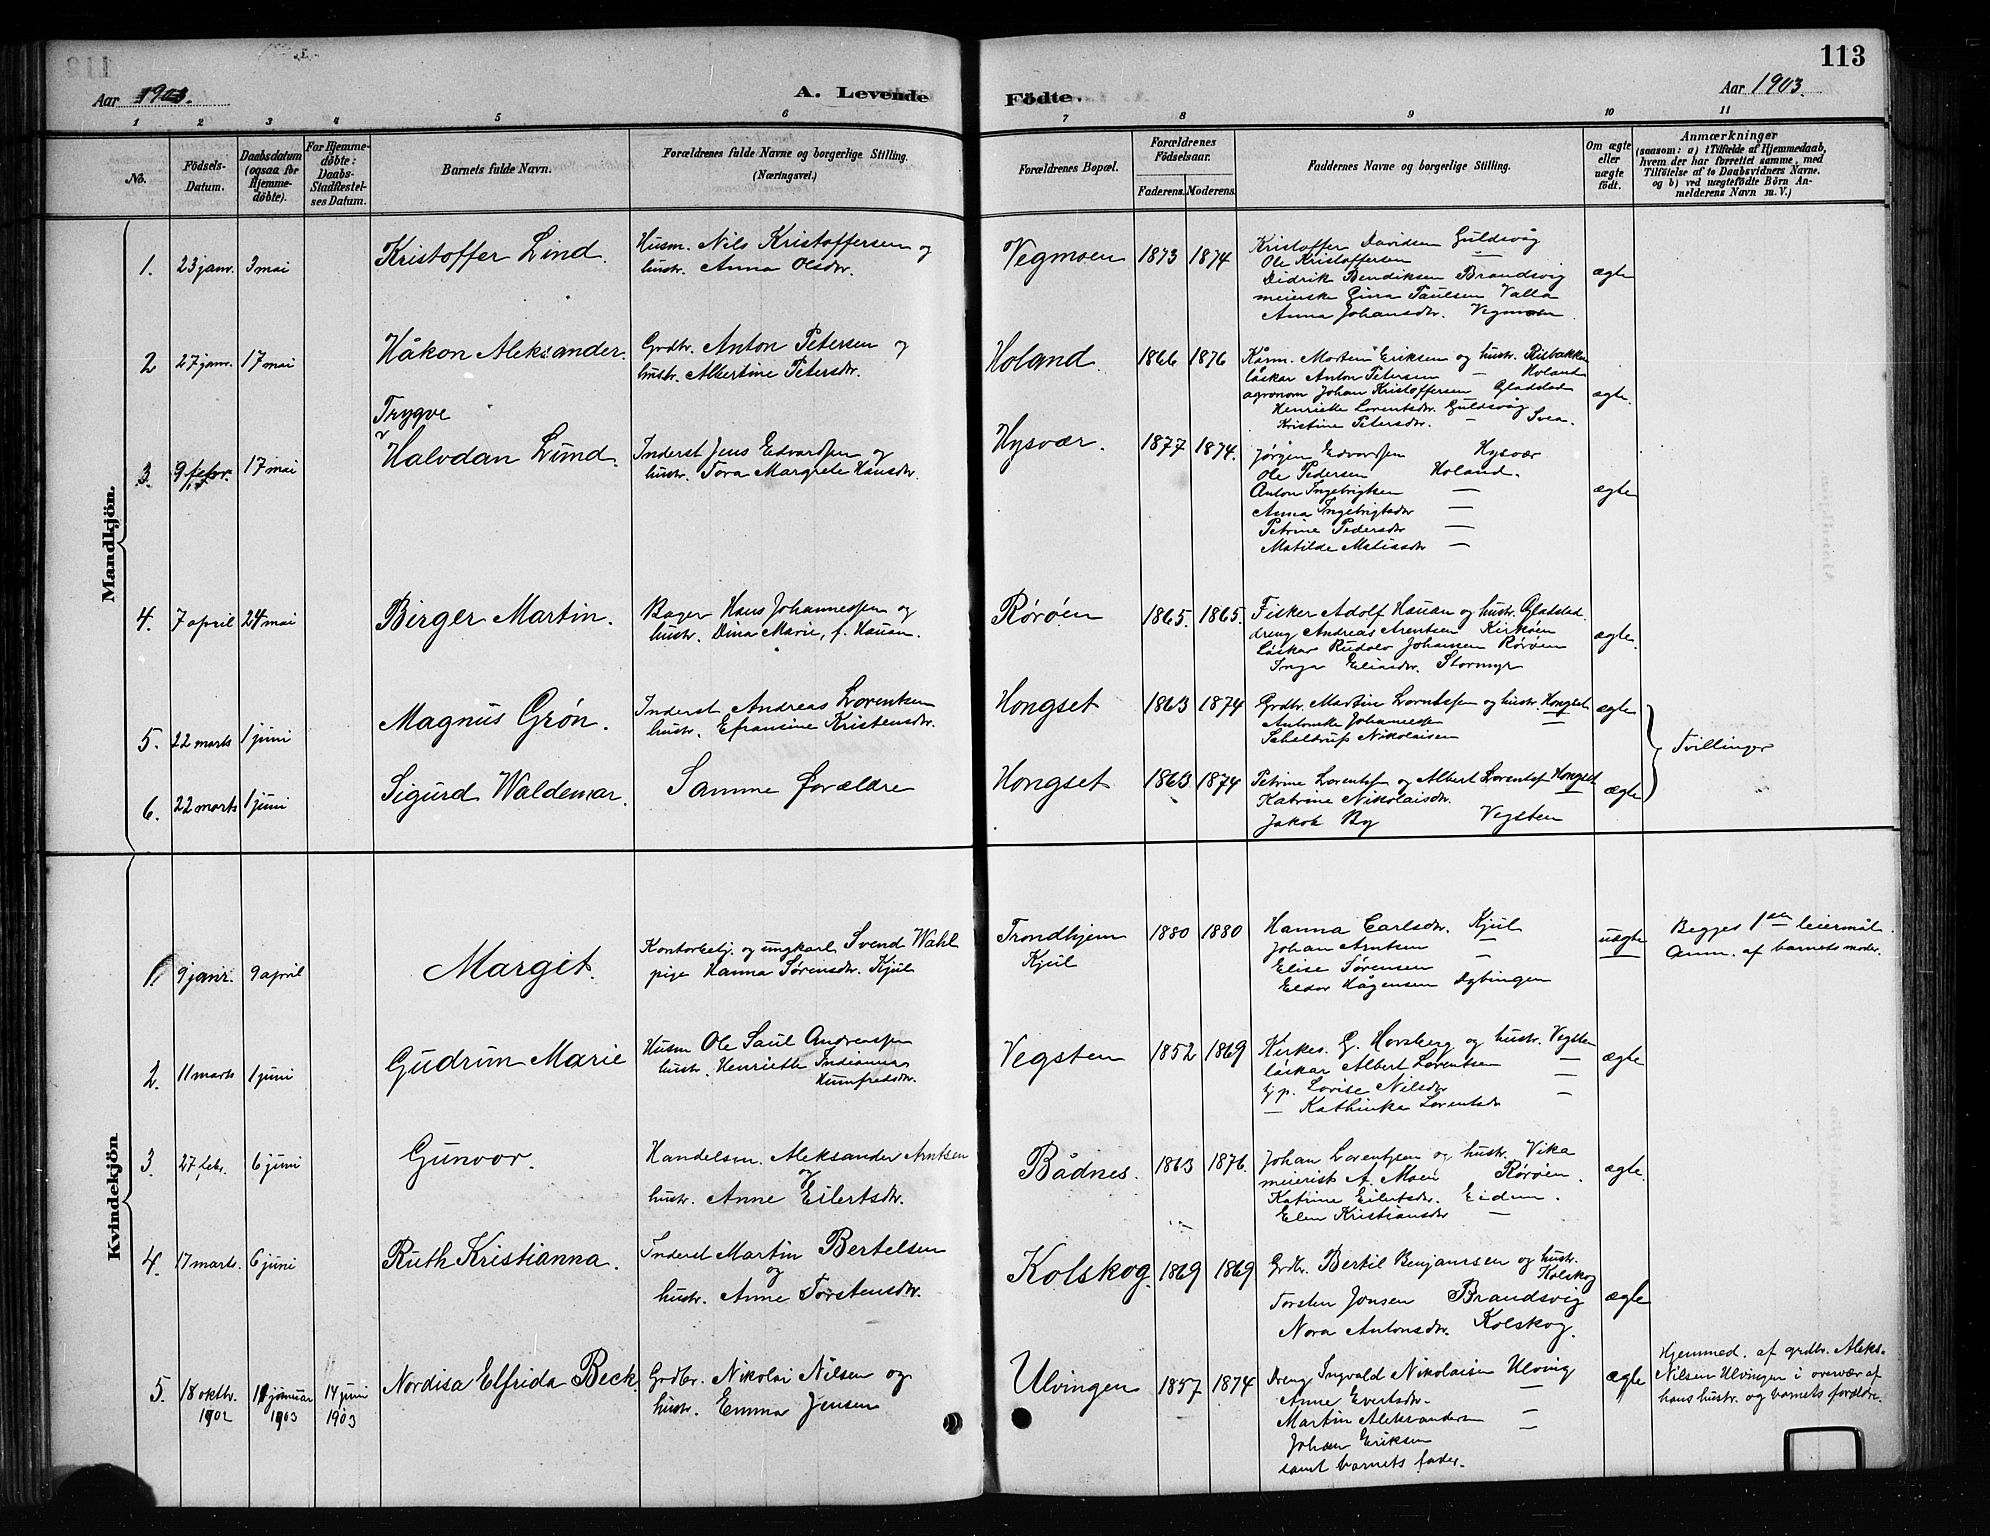 113
Aar 1903.
A. Levende Födte.
Aar 1903.
1 2 3 4 5 6 7 8 9 10 11
No.
Födsels-Datum.
Daabsdatum (ogsaa for Hjemmedöbte).
For Hjemmedöbte: Daabs-Stadfæstelses Datum.
Barnets fulde Navn.
Forældrenes fulde Navne og borgerlige Stilling. (Næringsvei.)
Forældrenes Bopæl.
Forældrenes Födselsaar.
Faderens. Moderens.
Faddernes Navne og borgerlige Stilling.
Om ægte eller uægte födt.
Anmærkninger
(saasom: a) i Tilfælde af Hjemmedaab, hvem der har forrettet samme, med Tilföielse af to Daabsvidners Navne. og b) ved uægtefödte Börn Anmelderens Navn m. V.)
Mandkjön.
1. 23 janr. 3 mai Kristoffer Lind. Husm. Nils Kristoffersen og
hustr. Anna Olsdtr.
Vegmoen 1873 1874 Kristoffer Davidsen Guldsvåg
Ole Kristoffersen —
Didrik Bendiksen Brandsvig
meierske Gina Paulsen Valla
Anna Johansdtr. Vegmoen.
ægte
2 27 janr. 17 mai Håkon Aleksander. Grdbr. Anton Petersen og
hustr. Albertine Petersdtr.
Holand. 1866 1876 Kårm. Morten Eriksen og hustr. Risbakken
låskar Anton Petersen — Holand
agronom Johan Kristoffersen Gladstad
Henriette Lorentsdtr. Guldsvåg
Kristine Petersdtr. — Svea.
ægte.
3. 9 febr. 17 mai Trygve
Halvdan Lund. Inderst Jens Edvardsen og
hustr. Tora Margrete Hansdtr.
Hysvær. 1877 1874. Jørgen Edvardsen Hysvær
Ole Pedersen Holand.
Anton Ingebrigtsen —
Anna Ingebrigtsdtr —
Petrine Pedersdtr —
Matilde Matissdtr —
ægte
4. 7 april 24 mai Birger Martin. Bager Hans Johannessen og
hustr. Dina Marie, f. Hauan.
Rørøen 1865. 1865. Fisker Adolf Hauan og hustr. Gladstad
dreng Andreas Arentsen Kirkøen
Låskar Rudolv Johansen Rørøen
Inga Eliasdtr. Stormyr
ægte.
5. 22 marts 1 juni Magnus Grøn. Inderst Andreas Lorentsen
hustr. Efransine Kristensdtr.
Hongset 1863 1874 Grdbr. Martin Lorntsen og hustr. Hongset
Antonke Johannessen —
Scheldrup Nikolaisen
ægte
Tvillinger
6. 22 marts 1 juni Sigurd Waldemar. Samme forældre
Hongset 1863 1874 Petrine Lorents og Albert Lorents Hongset
Katrine Nikolaisdtr.
Jakob By Vegsten
ægte
Kvindekjön
1. 9 janr. 9 april Margit. Kontorbetj. og ungkarl Svend Wahl
pige Hanna Sørensdtr. Kjul
Trondhjem
Kjul
1880 1880 Hanna Carlsdtr. Kjul
Johan Arntsen —
Elise Sørensen —
Eldor Hågensen Dybingen
uægte
Begges 1ste leiermål
Anm. af barnets moder.
2. 11 marts 1 juni Gudrun Marie Husm Ole Saul Andreassen
hustr. Henriette Indianna
Humfredsdtr.
Vegsten 1852 1869 Kirkes. G. Horsberg og hustr. Vegsten
låskar Albert Lorentsen —
tj p. Lovise Nilsdtr —
— Kathinka Lorentsdtr —
ægte
3. 27 febr. 6 juni Gunvor. Handelsm. Aleksander Arntsen
og
hustr. Anne Eilertsdtr.
Bådnes. 1863 1876. Johan Lorentsen og hustr. Vika
meierist A. Moen Rørøen.
Katrine Eilertsdtr. Eidem.
Elen Kristiansdtr —
ægte.
4. 17 marts. 6 juni Ruth Kristianna. Inderst Martin Bertelsen
og
hustr. Anne Torstensdtr.
Kolskog. 1869 1869 Grdbr. Bertil Benjaminsen og hustr.
Kolskog
Torsten Jonsen Brandsvig
Nora Antonsdtr. Kolskog.
ægte
5. 18 oktbr. 1902 11 januar 1903 14 juni 1903 Nordisa Elfrida Beck. Grdbr. Nikolai Nilsen og
hustr. Emma Jensen
Ulvingen 1857 1874 Dreng Ingvald Nikolaisen Ulving
Anne Evertsdtr. —
Martin Aleksandersen —
Johan Eriksen —
samt barnets fader.
ægte
Hjemmed. af grdbr. Aleks.
Nilsen Ulvingen i overvær af
hans hustr. og barnets forældre.